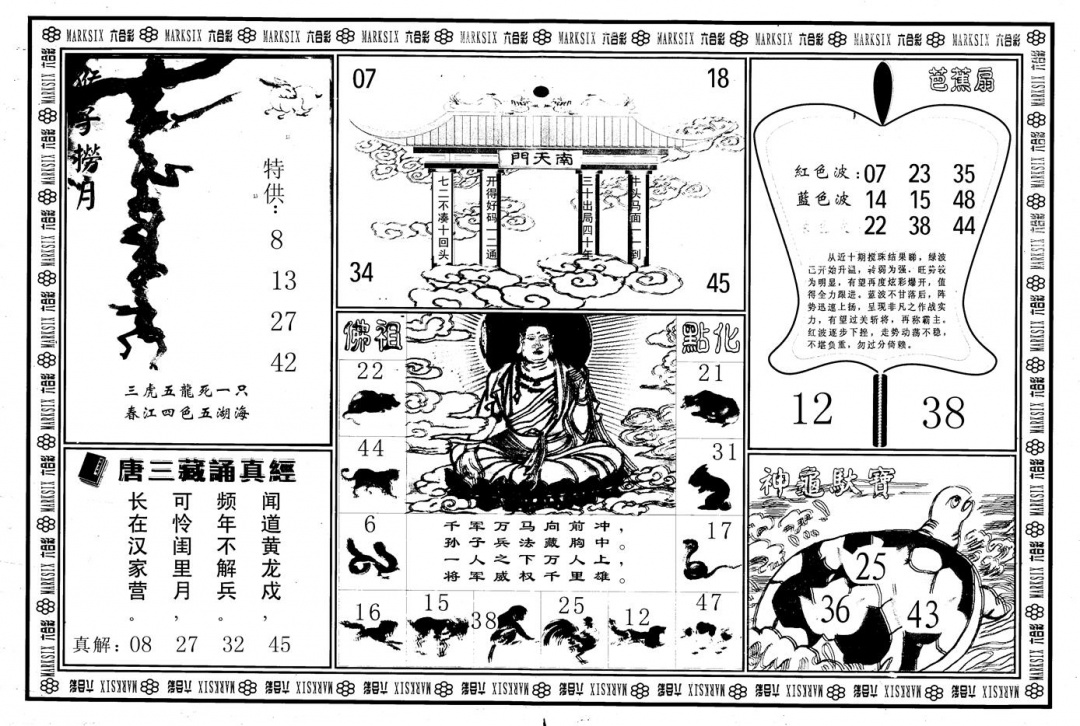 MARKSIX 六合彩 MARKSIX 六合彩 MARKSIX 六合彩 MARKSIX 六合彩 MARKSIX 六合彩 MARKSIX 六合彩 MARKSIX 六合彩 MARKSIX 六合彩 MARKSIX 六合彩 MARKSIX 六合彩
猴子撈月
特供：
8
13
27
42
三虎五龍死一只
春江四色五湖海
唐三藏誦真經
闻道黄龙戍，
频年不解兵。
可怜闺里月，
长在汉家营。
真解：08 27 32 45
07
18
南天門
七二不凑十回头
开得好码一二通
三十出局四十年
牛头马面一一到
34
45
佛祖
點化
22
21
44
31
6
17
千军万马向前冲，
孙子兵法藏胸中。
一人之下万人上，
将军威权千里雄。
16
15
38
25
12
47
芭蕉扇
紅色波：07 23 35
藍色波 14 15 48
22 38 44
从近十期搅珠结果睇，绿波
已开始升温，转弱为强，旺势较
为明显，有望再度炫彩爆开，值
得全力跟进。蓝波不甘落后，阵
势迅速上扬，呈现非凡之作战实
力，有望过关斩将，再称霸主。
红波逐步下挫，走势动荡不稳，
不堪负重，勿过分倚赖。
12
38
神龜馱寶
25
36
43